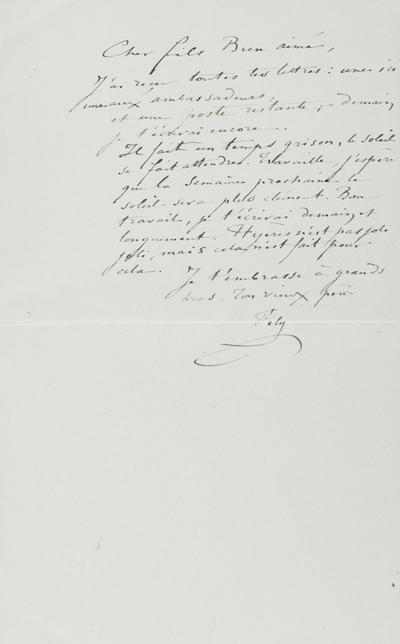 Cher fils Bien aimé,
J'ai reçu toutes tes lettres : une ici
une aux ambassadeurs,
et une poste restante, - demain
je t'écrirai encore.
Il fait un temps grison, le soleil
se fait attendre. Travaille, j'espère
que la semaine prochaine le
soleil sera plus clément. Bon
travail, je t'écrirai demain et
longuement. Hyères n'est pas joli
joli, mais cela n'est fait pour
cela.
Je t'embrasse à grands
bras. Ton vieux père
Fély